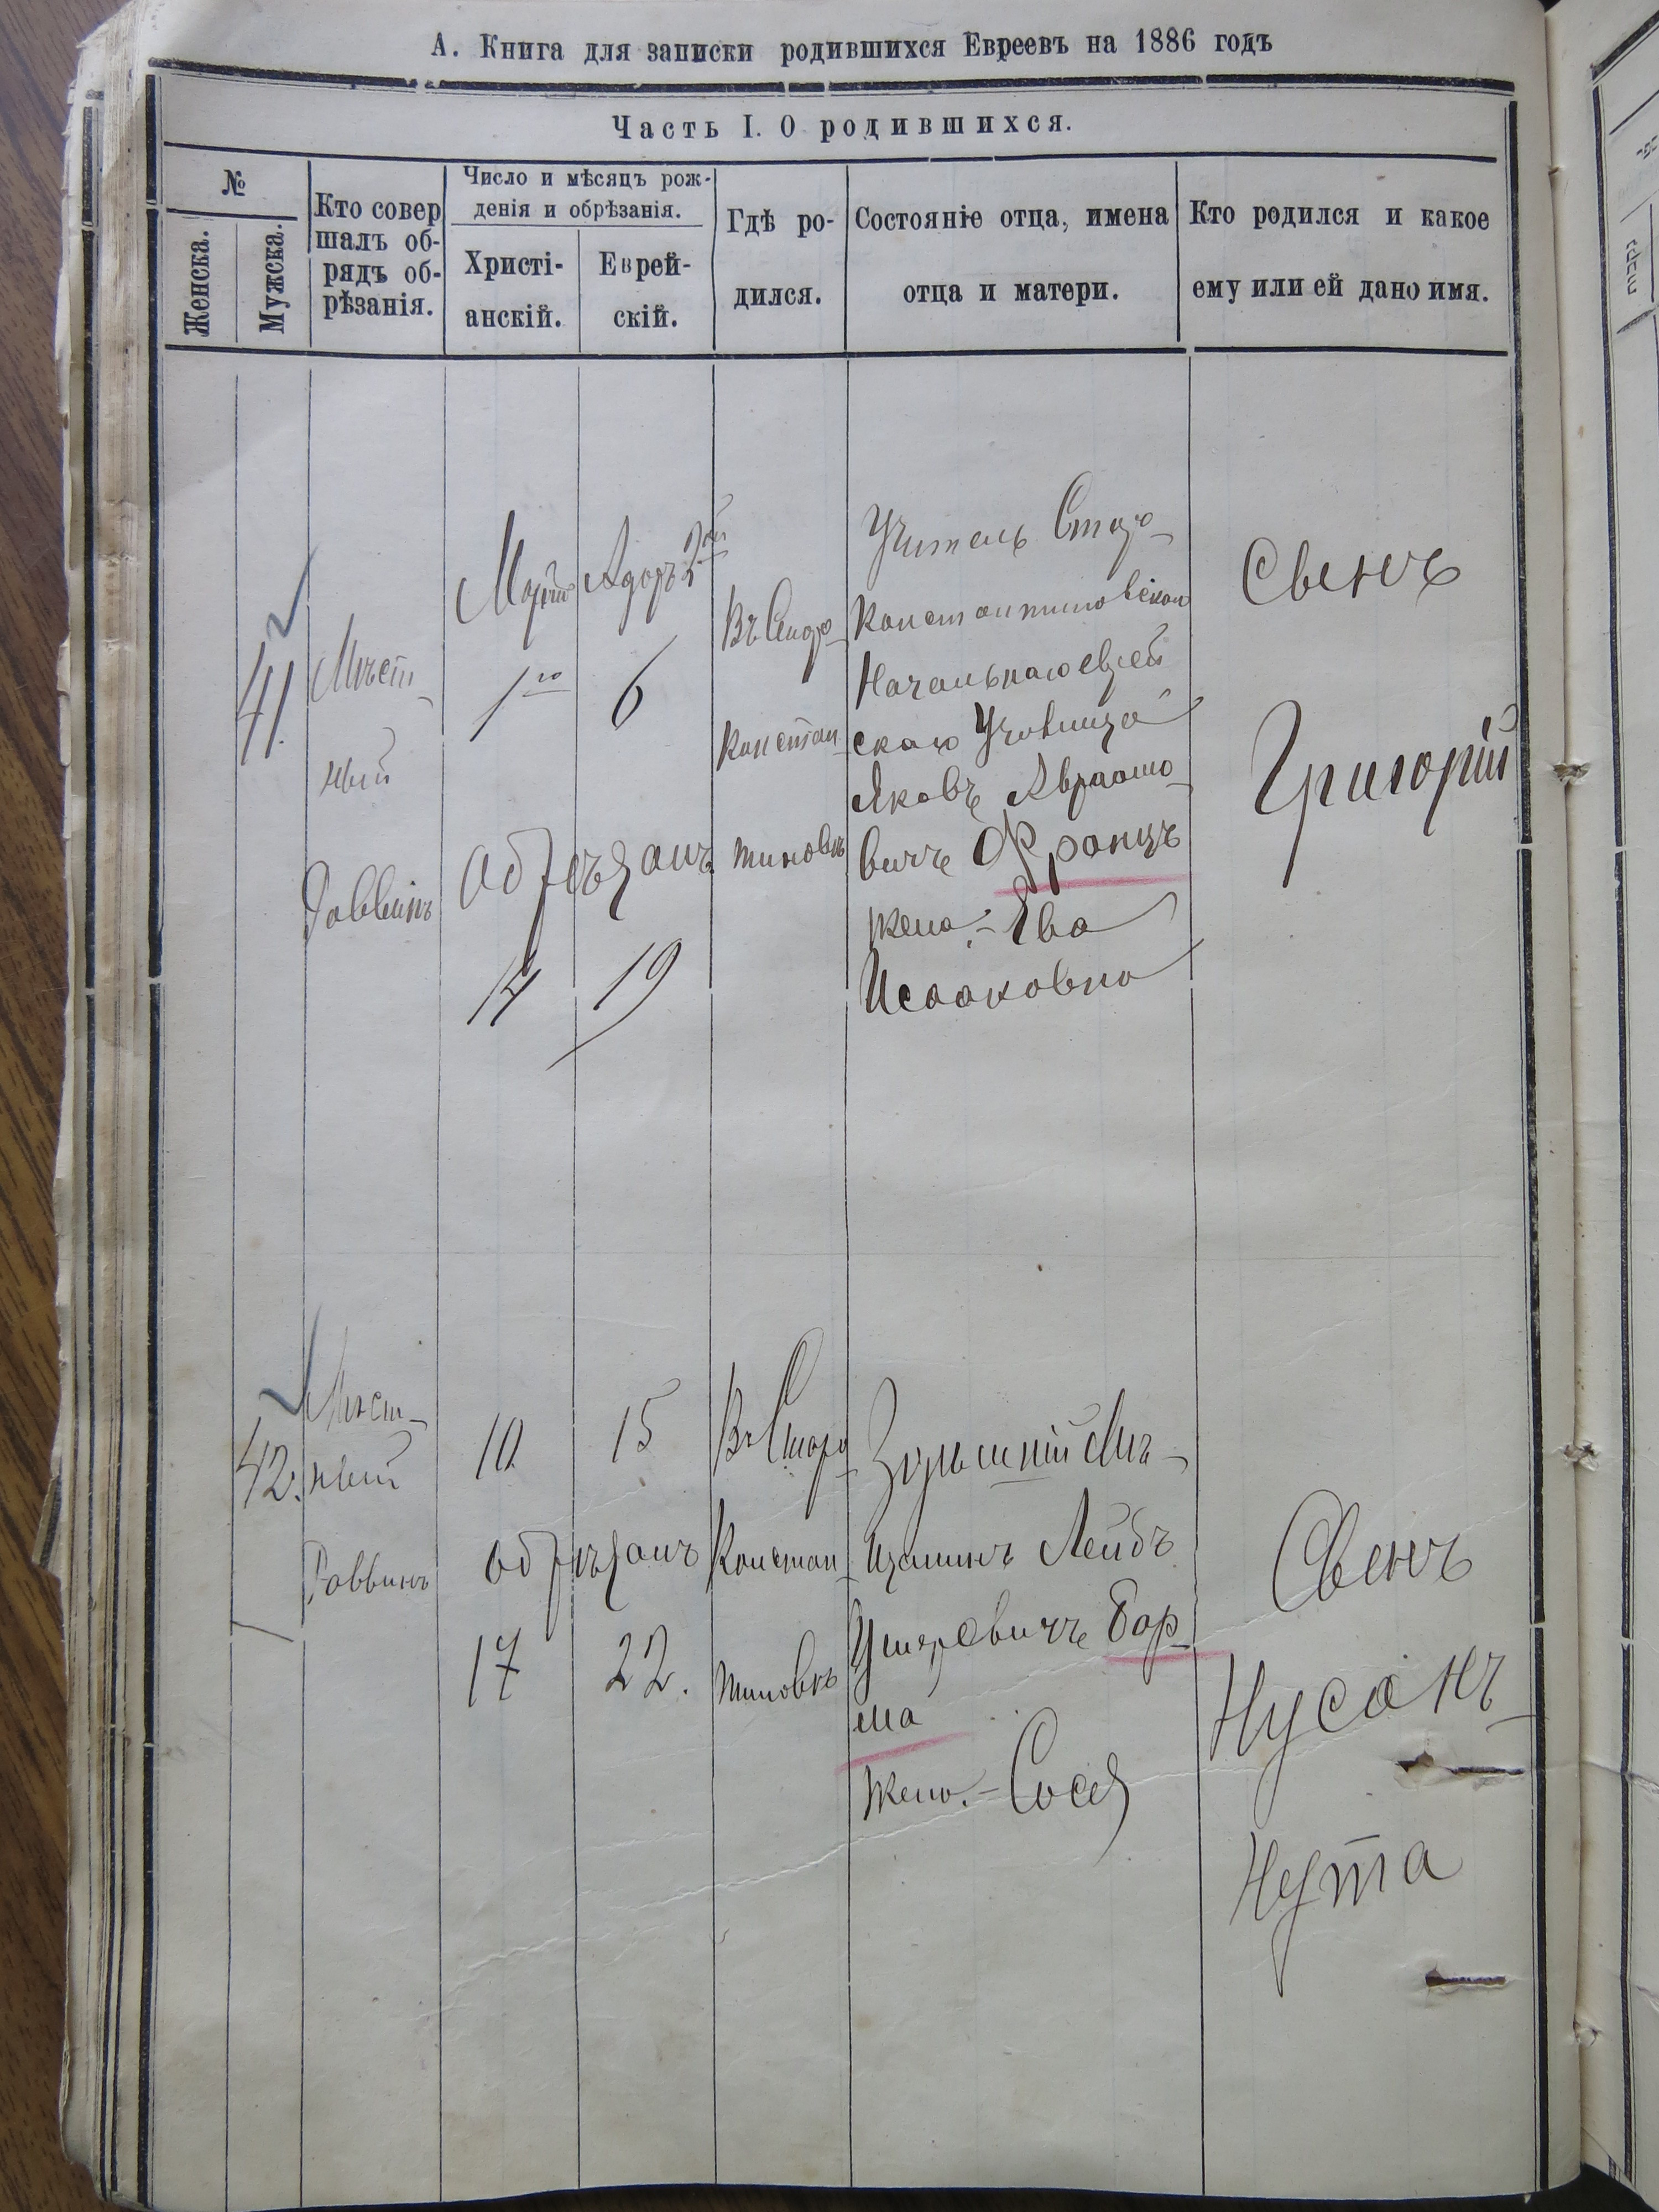 А. Книга для записки родившихся Евреевъ на 1886 годъ
Часть I. О родившихся.
№
Женска.
Мужска.
Кто совер
шалъ об-
рядъ об-
рѣзанія.
Число и мѣсяцъ рож-
денія и обрѣзанія.
Христі-
анскій.
Еврей-
скій.
Гдѣ ро-
дился.
Состояніе отца, имена
отца и матери.
Кто родился и какое
ему или ей дано имя.
41.
Мѣст-
ный
Раввинъ
Мартъ
1го
Адаръ 2й
6
Обрѣзанъ
14
19
Въ Старо-
констан-
тиновѣ
Учитель Старо-
константиновскаго
Начальнаго еврей
скаго Училища
Яковъ Авраамо-
вичъ Францъ
жена - Ева
Исааковна
Сынъ
Григорій
42.
Мѣст-
ный
Раввинъ
10
15
обрѣзанъ
17
22.
Въ Старо-
констан-
тиновѣ
Мѣ-
щанинъ Лейбъ
Ушеровичъ Бар-
ма
жена - Сося
Сынъ
Нусанъ-
Нута